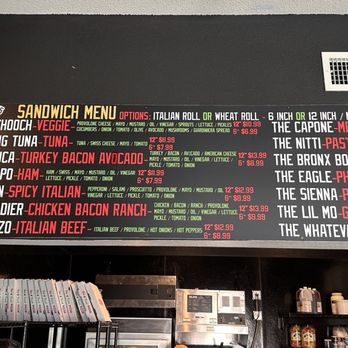 SANDWICH MENU OPTIONS: ITALIAN ROLL OR WHEAT ROLL - 6 INCH OR 12 INCH /
CHOOCH-VEGGIE- PROVOLONE CHEESE / MAYO / MUSTARD / OIL / VINEGAR / SPROUTS / LETTUCE / PICKLES
CUCUMBERS / ONION / TOMATO / OLIVE / AVOCADO / MUSHROOMS / GIARDINIERA SPREAD
12" $10.99
6" $6.99
TUNA-TUNA- TUNA / SWISS CHEESE / MAYO / TOMATO
12" $11.99
6" $7.99
TURKEY BACON AVOCADO- TURKEY / BACON / AVOCADO / AMERICAN CHEESE
MAYO / MUSTARD / OIL / VINEGAR / LETTUCE / PICKLE
/ TOMATO / ONION
12" $13.99
6" $8.99
PO-HAM- HAM / SWISS / MAYO / MUSTARD / OIL / VINEGAR
LETTUCE / PICKLE / TOMATO / ONION
12" $11.99
6" $7.99
SPICY ITALIAN- PEPPERONI / SALAMI / PROSCIUTTO / PROVOLONE / MAYO / MUSTARD / OIL
VINEGAR / LETTUCE / PICKLE / TOMATO / ONION
12" $12.99
6" $8.99
DIER-CHICKEN BACON RANCH- CHICKEN / BACON / RANCH / PROVOLONE
MAYO / MUSTARD / OIL / VINEGAR / LETTUCE
PICKLE / TOMATO / ONION
12" $13.99
6" $8.99
ZO-ITALIAN BEEF- ITALIAN BEEF / PROVOLONE / HOT ONIONS / HOT PEPPERS
12" $12.99
6" $8.99
THE CAPONE-
THE NITTI-PAST
THE BRONX BO
THE EAGLE-PH
THE SIENNA-P
THE LIL MO-G
THE WHATEV